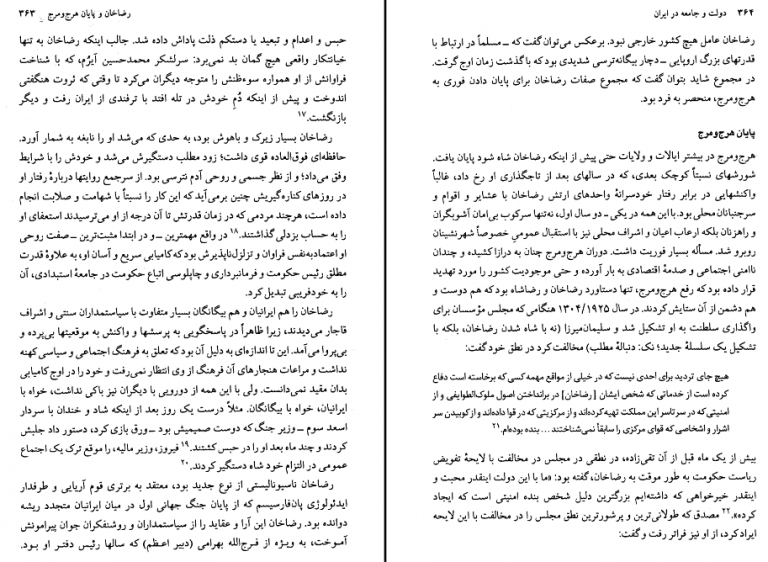 رضاخان و پایان هرج‌ومرج ۳۶۳
حبس و اعدام و تبعید یا دستکم ذلت پاداش داده شد. جالب اینکه رضاخان به تنها
خیانتکار واقعی هیچ گمان بد نمی‌برد: سرلشکر محمدحسین آیرُم، که با شناخت
فراوانش از او همواره سوءظنش را متوجه دیگران می‌کرد تا وقتی که ثروت هنگفتی
اندوخت و پیش از اینکه دُمِ خودش در تله افتد با ترفندی از ایران رفت و دیگر
بازنگشت.۱۷
رضاخان بسیار زیرک و باهوش بود، به حدی که می‌شد او را نابغه به شمار آورد.
حافظه‌ای فوق‌العاده قوی داشت؛ زود مطلب دستگیرش می‌شد و خودش را با شرایط
وفق می‌داد؛ و از نظر جسمی و روحی آدم نترسی بود. از سرجمع روایتها دربارۀ رفتار او
در روزهای کناره‌گیریش چنین برمی‌آید که این کار را نسبتاً با شهامت و صلابت انجام
داده است، هرچند مردمی که در زمان قدرتش تا آن درجه از او می‌ترسیدند استعفای او
را به حساب بزدلی گذاشتند.۱۸ در واقع مهمترین ـ و در ابتدا مثبت‌ترین ـ صفت روحی
او اعتمادبه‌نفس فراوان و تزلزل‌ناپذیرش بود که کامیابی سریع و آسان او، به‌علاوۀ قدرت
مطلق رئیس حکومت و فرمانبرداری و چاپلوسی اتباع حکومت در جامعۀ استبدادی، آن
را به خودفریبی تبدیل کرد.
رضاخان را هم ایرانیان و هم بیگانگان بسیار متفاوت با سیاستمداران سنتی و اشراف
قاجار می‌دیدند، زیرا ظاهراً در پاسخگویی به پرسشها و واکنش به موقعیتها بی‌پرده و
بی‌پروا می‌آمد. این تا اندازه‌ای به دلیل آن بود که تعلق به فرهنگ اجتماعی و سیاسی کهنه
نداشت و مراعات هنجارهای آن فرهنگ از وی انتظار نمی‌رفت و خود را در اوج کامیابی
بدان مقید نمی‌دانست. ولی با این همه از دورویی با دیگران نیز باکی نداشت، خواه با
ایرانیان، خواه با بیگانگان. مثلاً درست یک روز بعد از اینکه شاد و خندان با سردار
اسعد سوم ـ وزیر جنگ که دوست صمیمیش بود ـ ورق بازی کرد، دستور داد جلبش
کردند و چند ماه بعد او را در حبس کشتند.۱۹ فیروز، وزیر مالیه، را موقع ترک یک اجتماع
عمومی در التزام خود شاه دستگیر کردند.۲۰
رضاخان ناسیونالیستی از نوع جدید بود، معتقد به برتری قوم آریایی و طرفدار
ایدئولوژی پان‌فارسیسم که از پایان جنگ جهانی اول در میان ایرانیان متجدد ریشه
دوانده بود. رضاخان این آرا و عقاید را از سیاستمداران و روشنفکران جوان پیرامونش
آموخت، به ویژه از فرج‌الله بهرامی (دبیر اعظم) که سالها رئیس دفتر او بود.
۳۶۴ دولت و جامعه در ایران
رضاخان عامل هیچ کشور خارجی نبود. برعکس می‌توان گفت که ـ مسلماً در ارتباط با
قدرتهای بزرگ اروپایی ـ دچار بیگانه‌ترسی شدیدی بود که با گذشت زمان اوج گرفت.
در مجموع شاید بتوان گفت که مجموع صفات رضاخان برای پایان دادن فوری به
هرج‌ومرج، منحصر به فرد بود.
پایان هرج‌ومرج
هرج‌ومرج در بیشتر ایالات و ولایات حتی پیش از اینکه رضاخان شاه شود پایان یافت.
شورشهای نسبتاً کوچک بعدی، که در سالهای بعد از تاجگذاری او رخ داد، غالباً
واکنشهایی در برابر رفتار خودسرانۀ واحدهای ارتش رضاخان با عشایر و اقوام و
سرجنبانان محلی بود. با این همه در یکی ـ دو سال اول، نه‌تنها سرکوب بی‌امان آشوبگران
و راهزنان بلکه ارعاب اعیان و اشراف محلی نیز با استقبال عمومیِ خصوصاً شهرنشینان
روبرو شد. مسأله بسیار فوریت داشت. دوران هرج‌ومرج چنان به درازا کشیده و چندان
ناامنی اجتماعی و صدمۀ اقتصادی به بار آورده و حتی موجودیت کشور را مورد تهدید
قرار داده بود که رفع هرج‌ومرج، تنها دستاورد رضاخان و رضاشاه بود که هم دوست و
هم دشمن از آن ستایش کردند. در سال ۱۳۰۴/۱۹۲۵ هنگامی که مجلس مؤسسان برای
واگذاری سلطنت به او تشکیل شد و سلیمان‌میرزا (نه با شاه شدن رضاخان، بلکه با
تشکیل یک سلسلۀ جدید؛ نک: دنبالۀ مطلب) مخالفت کرد در نطق خود گفت:
هیچ جای تردید برای احدی نیست که در خیلی از مواقع مهمه کسی که برخاسته است دفاع
کرده است از خدماتی که شخص ایشان [رضاخان] در برانداختن اصول ملوک‌الطوایفی و از
امنیتی که در سرتاسر این مملکت تهیه کرده‌اند و از مرکزیتی که در قوا داده‌اند و از کوبیدن سر
اشرار و اشخاصی که قوای مرکزی را سابقاً نمی‌شناختند ... بنده بوده‌ام.۲۱
بیش از یک ماه قبل از آن تقی‌زاده، در نطقی در مجلس در مخالفت با لایحۀ تفویض
ریاست حکومت به طور موقت به رضاخان، گفته بود: «ما با این دولت اینقدر محبت و
اینقدر خیرخواهی که داشته‌ایم بزرگترین دلیل شخص بنده امنیتی است که ایجاد
کرده».۲۲ مصدق که طولانی‌ترین و پرشورترین نطق مجلس را در مخالفت با این لایحه
ایراد کرد، از او نیز فراتر رفت و گفت: